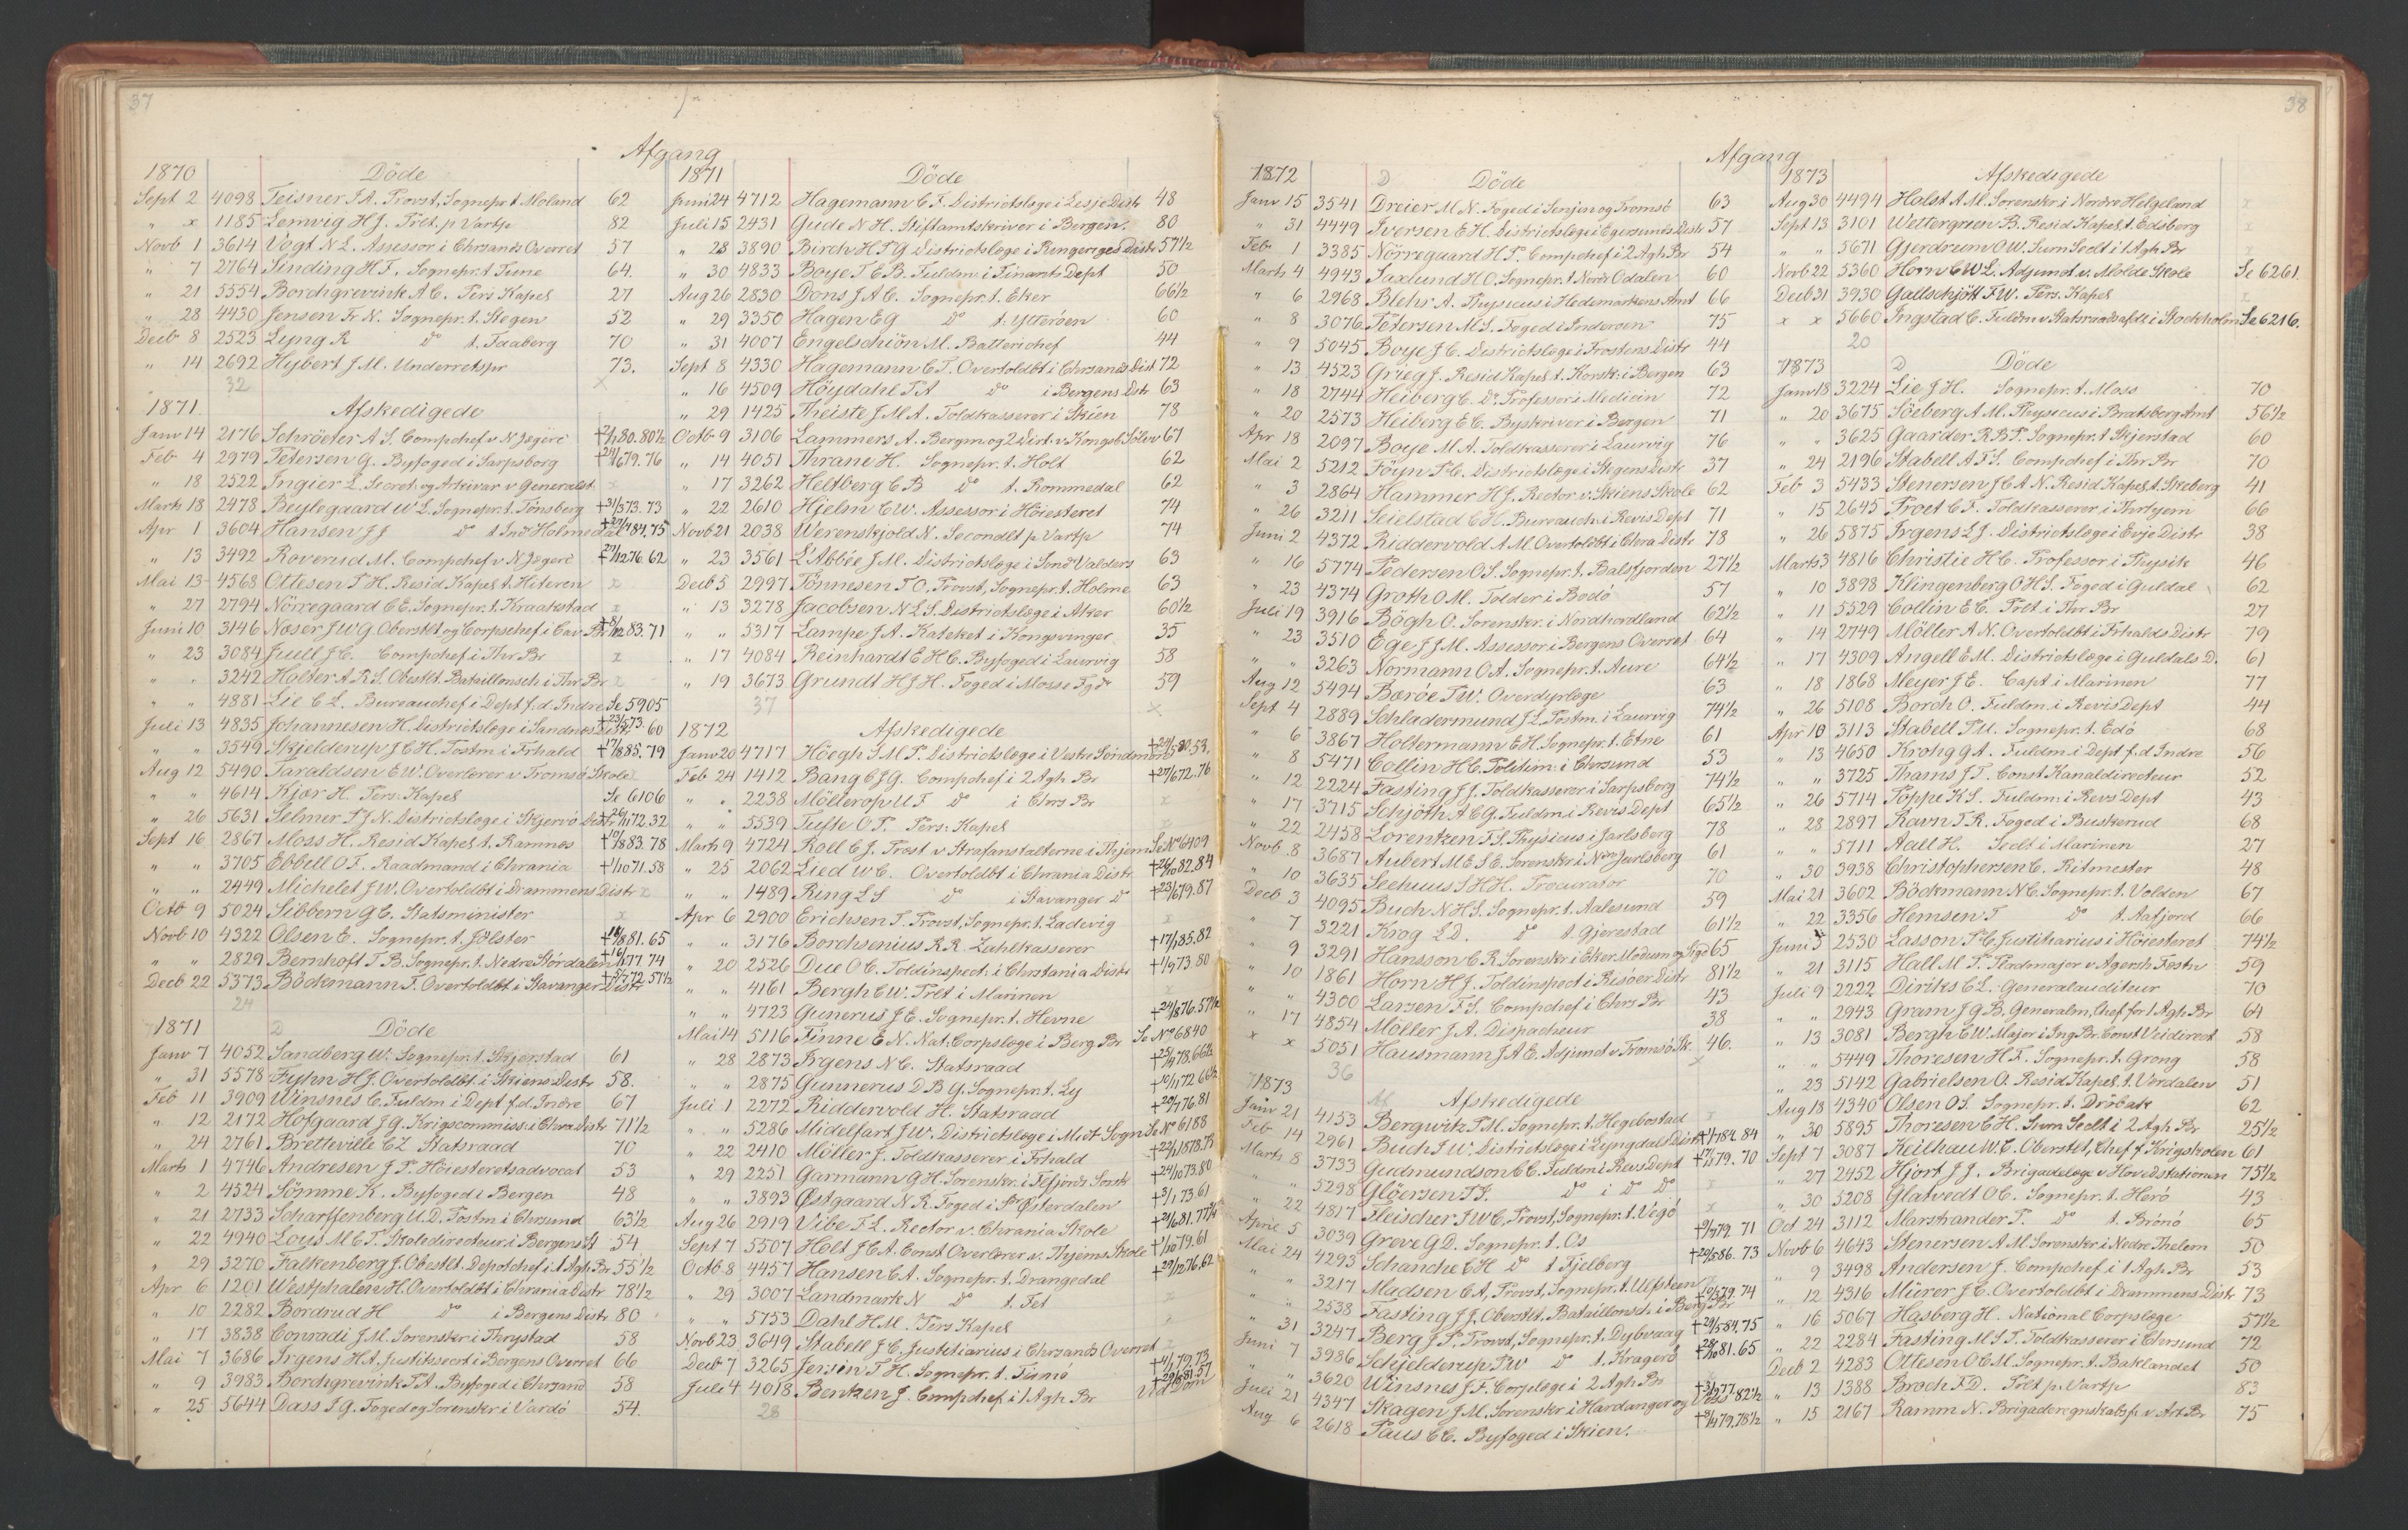 37
Afgang
1870 Döde
Sept 2 4098 Teisner J A. Provst, Sognepr. t. Moland 62
" x 1185 Lemvig H J. Prlt. p Vartp 82
Novb 1 3614 Vogt N L. Assessor i Chrsands Overret 57
" 7 2764 Sinding H F. Sognepr. t Tune 64.
" 21 5554 Borchgrevink A C. Pers Kapel 27
" 28 4430 Jensen Fr N. Sognepr. t. Stegen 52
Decb 8 2523 Lyng R do t. Faaberg 70
" 14 2692 Hybert J M. Underretspr 73.
32 x
1871. Afskedigede
Janv 14 2176 Schröeter A S. Compchef v N Jægerc
Feb 4 2979 Petersen G. Byfoged i Sarpsborg
" 18 2522 Ingier L. Secret. og Arkivar v Generalst. x
Marts 18 2478 Beylegaard W L. Sognepr. t. Tönsberg +31/573.73
Apr 1 3604 Hansen J J do t Indr Holmedal
" 13 3492 Roverud M. Compchef v N Jægerc +27/1276.62
Mai 13 4568 Ottesen P H. Resid Kapel t. Hiteren x
" 27 2794 Nörregaard C E. Sognepr. t. Kraakstad x
Juni 10 3146 Næser J W G. Oberstlt og Corpschef i Cav Br +8/1283.71
" 23 3084 Juell J C. Compchef i Thr Br x
" " 3242 Holter A R S. Obestlt. Bataillonsch i Thr Br x
" " 4881 Lie C L. Bureauchef i Dept f. d. Indre Se 5905
Juli 13 4835 Johannesen H. Districtslæge i Sandnæs Distr +23/573.60
" " 3549 Skjelderup J C H. Postm. i Frhald +17/885.79
Aug 12 5490 Taraldsen E W. Overlærer v Tromsö Skole x
" " 4614 Kjær H. Pers. Kapel Se 6106
" 26 5631 Selmer P J N. Districtslæge i Skjervö Distr
Sept 16 2867 Moss H. Resid Kapel t. Ramnes +10/883.78
" " 3705 Ebbell O F. Raadmand i Chrania +1/1071.58
" " 2449 Michelet J W. Overtoldbt i Drammens Distr x
Octb 9 5024 Sibbern G C. Statsminister x
Novb 10 4322 Olsen E. Sognepr. t. Jölster
" " 2829 Bernhoft T B. Sognepr. t. Nedre Stördalen
Decb 22 5373 Böckmann F. Overtoldbt i Stavanger Distr
24
1871 D Döde
Janv 7 4052 Sandberg W. Sognepr. t. Skjerstad 61
" 31 5578 Fyhn H J. Overtoldbt. i Skiens Distr 58.
Feb 11 3909 Winsnes C. Fuldm i Dept f. d. Indre 67
" 12 2172 Hofgaard J G. Krigscommiss. i Chra Distr 71½
" 24 2761 Bretteville C Z Statsraad 70
Marts 1 4746 Andresen J P. Höiesteretsadvocat 53
" 2 4524 Sömme K. Byfoged i Bergen 48
" 21 2733 Scharffenberg U. D. Postm i Chrsund 63½
" 22 4940 Lous M C T. Skoledirecteur i Bergens St 54
" 29 3270 Falkenberg J. Obestlt. Depotchef i 1 Agh Br 55½
Apr 6 1201 Westphalen H. Overtoldbt i Chrania Distr 78½
" 10 2282 Bordrud H do i Bergens Distr 80
" 17 3838 Conradi J M. Sorenskr i Thrystad 58
Mai 7 3686 Irgens H A. Justitssecrt i Bergens Overret 66
" 9 3983 Borchgrevink P A. Byfoged i Chrsand 58
" 25 5644 Dass P G. Foged og Sorenskr i Vardö 54.
1871 Döde
Juni 24 4712 Hagemann C F. Districtslæge i Lesje Distr 48
Juli 15 2431 Gude N H. Stiftamtskriver i Bergen. 80
" 28 3890 Birch H P G Districtslæge i Ringeriges Distr 57½
" 30 4833 Boye T E B. Fuldm. i Finants Dept 50
Aug 26 2830 Dons J A C. Sognepr. t. Eker 66½
" 29 3350 Hagen E G do t. Ytteröen 60
" 31 4007 Engelschiön M. Batterichef 44
Sept 8 4330 Hagemann C T. Overtoldbt i Chrsands Dist 72
" 16 4509 Höydahl T A do i Bergens Dstr 63
" 29 1425 Theiste J M A. Toldkasserer i Skien 78
Octb 9 3106 Lammers A. Bergm. og 2 Dirt. v Kongsb Sölvv 67
" 14 4051 Thrane H. Sognepr. t. Holt 62
" 17 3262 Heltberg C B do t. Rommedal 62
" 22 2610 Hjelm C W. Assessor i Höiesteret 74
Novb 21 2038 Werenskjold N. Secondlt p Vartp 74
" 23 3561 L'Abbée J M. Districtslæge i Söndr Valders 63
Decb 5 2997 Tönnesen T O. Provst, Sognepr. t. Holme 63
" 13 3278 Jacobsen N L S. Districtslæge i Aker 60½
" " 5317 Lampe J A. Kateket i Kongsvinger 35
" 17 4084 Reinhardt E H C. Byfoged i Laurvig 58
" 19 3673 Grundt H J H. Foged i Mosse Fgd 59
37 x
1872 Afskedigede
Janv 20 4717 Höegh S M P. Districtslæge i Vestre Söndmör
Feb 24 1412 Bang C J G. Compchef i 2 Agh Br +27/672.76
" " 2238 Möllerop U F do i Chrs Br x
" " 5539 Tufte O P. Pers. Kapel x
Marts 9 4724 Roll C J. Præst v Strafanstalterne i Thjem Se No 6409
" 25 2062 Lied W C. Overtoldbt i Chrania Distr +26/1082.84
" " 1489 Ring L S do i Stavanger do +23/679.87
Apr 6 2900 Erichsen T. Provst, Sognepr. t. Ladvig x
" " 3176 Borchsenius R R. Zahlkasserer +17/185.82
" 20 2526 Due O C. Toldinspect. i Chrstania Distr +1/973.80
" " 4161 Bergh E W. Prlt i Marinen x
" " 4723 Gunerus J E. Sognepr. t. Hevne +24/876.57½
Mai 14 5116 Finne E N. Nat. Corpslæge i Berg Br Se No 6840
" 28 2873 Irgens N C. Statsraad
" " 2875 Gunnerus D B G. Sognepr. t. Ly
Juli 1 2272 Riddervold H. Statsraad +20/476.81
" " 5286 Midelfart J W. Districtslæge i Midt Sogn Se No 6188
" 22 2410 Möller J. Toldkasserer i Frhald
" 29 2251 Garmann G H. Sorenskr. i Alfjords Sorsk +24/1073.80
" " 3893 Østgaard N R. Foged i Sr Østerdalen +3/173.61
Aug 26 2919 Vibe F L. Rector v. Chrania Skole
Sept 7 5507 Holt J C A. Const Overlærer v. Thjems Skole +1/1079.61
Octb 8 4457 Hansen C A. Sognepr. t. Drangedal +29/1276.62
" 29 3007 Landmark N do t. Fet x
" " 5753 Dahl H M. Pers Kapel x
Novb 23 3649 Stabell J C. Justitiarius i Chrsands Overret x
Decb 7 3265 Jersin P H. Sognepr. t. Finnö
Juli 4 4018 Bentzen J. Compchef i 1 Agh Br Ved Dom
28
38
Afgang
1872 D Döde
Janv 15 3541 Dreier M N. Foged i Senjen og Tromsö 63
" 31 4449 Iversen E H. Districtslæge i Egersunds Distr 57
Feb 1 3385 Nörregaard H P. Compchef i 2 Agh Br 54
Marts 4 4943 Saxlund H O. Sognepr. t Nordr Odalen 60
" 6 2968 Blehr A. Physicus i Hedemarkens Amt 66
" 8 3076 Petersen M S. Foged i Inderöen 75
" 9 5045 Boye J C. Districtslæge i Frostens Distr 44
" 13 4523 Grieg J. Resid Kapel t. Korsk. i Bergen 63
" 18 2744 Heiberg C. Dr. Professor i Medicin 72
" 20 2573 Heiberg E C. Byskriver i Bergen 71
Apr 18 2097 Boye M A. Toldkasserer i Laurvig 76
Mai 2 5212 Föyn P C. Districtslæge i Stegens Distr 37
" 3 2864 Hammer H J. Rector v. Skiens Skole 62
" 26 3211 Seielstad E H. Bureauch. i Revis Dept 71
Juni 2 4372 Riddervold A M. Overtoldbt i Chra Distr 78
" 16 5774 Pedersen O S. Sognepr. t. Balsfjorden 27½
" 23 4374 Groth O M. Tolder i Bodö 57
Juli 19 3916 Bögh O. Sorenskr. i Nordhordland 62½
" 23 3510 Ege J J M. Assessor i Bergens Overret 64
" " 3263 Normann O A. Sognepr. t. Aure 64½
Aug 12 5494 Baröe P W. Overdyrlæge 63
Sept 4 2889 Schladermund J L. Postm. i Laurvig 74½
" 6 3867 Holtermann E H. Sognepr. t. Etne 61
" 8 5471 Collin H C. Politim. i Chrsund 53
" 12 2224 Fasting J J. Toldkasserer i Sarpsborg 74½
" 17 3715 Schjöth A C G. Fuldm. i Revis Dept 65½
" 22 2458 Lorentzen F S. Physicus i Jarlsberg 78
Novb. 8 3687 Aubert M E S E. Sorenskr i Ndre Jarlsberg 61
" 10 3635 Seehuus S H H. Procurator 70
Decb 3 4095 Buch N H S. Sognepr. t. Aalesund 59
" 7 3221 Krog L D. do t. Gjerestad 61½
" 9 3291 Hansson C R. Sorenskr i Eker Modum og Sigd 65
" 10 1861 Horn H J. Toldinspect i Risöer Distr 81½
" " 4300 Larsen P S. Compchef i Chrs Br 43
" 17 4854 Möller J A. Dispacheur 38
x x 5051 Hausmann J A C. Adjunct v Tromsö Sk. 46.
36 x
1873 Af Afskedigede
Janv 21 4153 Bergwitz P M. Sognepr. t. Hegebostad x
Feb 14 2961 Buch J W. Districtslæge i Lyngdals Distr
Marts 8 3733 Gudmundson C C. Fuldm. i Revs Dept
" " 5298 Glöersen P P. do i do do x
" 22 4817 Fleischer J W C. Provst, Sognepr. t. Vegö x
April 5 3039 Greve G D. Sognepr. t. Os
Mai 24 4293 Schanche E H do t Fjelberg +29/586.73
" " 3217 Madsen C A. Provst, Sognepr. t. Ulfsteen x
" " 2538 Fasting J J. Oberstlt. Bataillonsch. i Berg Br
" 31 3247 Berg J P. Provst, Sognepr. t. Dybvaag
Juni 7 3986 Schjelderup P W do t. Kragerö
" " 3620 Winsnes J F. Corpslæge i 2 Agh Br
Juli 21 4347 Skagen J M. Sorenskr i Hardanger og Voss
Aug 6 2618 Paus C C. Byfoged i Skien.
1873 Afskedigede
Aug 30 4494 Holst A M. Sorenskr i Nordre Helgeland x
Sept 13 3101 Wettergreen B. Resid Kapel t. Edsberg x
" " 5671 Gjerdrum O W. Surn Seclt i 1 Agh Br x
Novb 22 5360 Horn C W L. Adjunct v. Molde Skole Se 6261.
Decb 31 3930 Gallschjött F W. Pers. Kapel x
x x 5660 Ingstad C. Fuldm v Statsraadsafdl i Stockholm Se 6216.
20
1873 D Döde
Janv 18 3224 Lie J H. Sognepr. t. Moss 70
" 20 3675 Söeberg A M. Physicus i Bratsberg Amt 56½
" " 3625 Gaarder R B P. Sognepr. t Skjerstad 60
" 24 2196 Stabell A F S. Compchef i Thr Br 70
Feb 3 5433 Stenersen J C A N. Resid Kapel t. Skeberg 41
" 15 2645 Froet C F. Toldkasserer i Thrhjem 66
" 26 5875 Irgens L J. Districtslæge i Evje Distr 38
Marts 3 4816 Christie H C. Professor i Physik 46
" 10 3898 Klingenberg O H S. Foged i Guldal 62
" 11 5529 Collin E C. Prlt. i Thr Br 27
" 14 2749 Möller A N. Overtoldbt i Frhalds Distr 79
" 17 4309 Angell E M. Districtslæge i Guldals D. 61
" 18 1868 Meyer J E. Capt i Marinen 77
" 26 5108 Borch O. Fuldm. i Revis Dept 44
Apr 10 3113 Stabell P U. Sognepr. t. Edö 68
" 13 4650 Krohg G A. Fuldm. i Dept f. d Indre 56
" " 3725 Thams J T. Const Kanaldirecteur 52
" 26 5714 Poppe K S. Fuldm. i Revs Dept 43
" 28 2897 Ravn P R. Foged i Buskerud 68
" " 5711 Aall H. Seclt i Marinen 27
" 30 3938 Christophersen C. Ritmester 48
Mai 21 3602 Böckmann N C. Sognepr. t. Volden 67
" 22 3356 Hemsen T do t. Aafjord 66
Juni 3 2530 Lasson P C. Justitiarius i Höiesteret 74½
" 21 3115 Hall M F. Pladsmajor v Agersh Fæstn 59
Juli 9 2222 Diriks C L. Generalauditeur 70
" " 2943 Gram J G B. Generalm, Chef for 1 Agh Br 64
" 13 3081 Bergh E W. Major i Ing Br. Const Veidirect 58
" " 5449 Thoresen H F. Sognepr. t. Grong 58
" 23 5142 Gabrielsen O. Resid Kapel t. Verdalen 51
Aug 18 4340 Olsen O S. Sognepr. t. Dröbak 62
" 30 5895 Thoresen E H. Surn Seclt i 2 Agh Br 25½
Sept 7 3087 Keilhau W C. Oberstlt, Chef f Krigsskolen 61
" 27 2452 Hjort J J. Brigadelæge v Hovedstationen 75½
" 30 5208 Glatvedt O C. Sognepr. t. Herö 43
Oct 24 3112 Marstrander P. do t. Brönö 65
Novb 6 4643 Stenersen A M. Sorenskr i Nedre Thelem 50
" 9 3498 Andersen J. Compchef i 1 Agh Br 53
" 12 4316 Mürer J C. Overtoldbt i Drammens Distr 73
" 16 5067 Hasberg H. National Corpslæge 57½
" 22 2284 Fasting M S P. Toldkasserer i Chrsund 72
Decb 2 4283 Ottesen O C M. Sognepr. t. Baklandet 50
" 13 1388 Broch F D. Prlt p. Vartp 83
" 15 2167 Ramm N. Brigaderegnskabsf. v Art Br 75